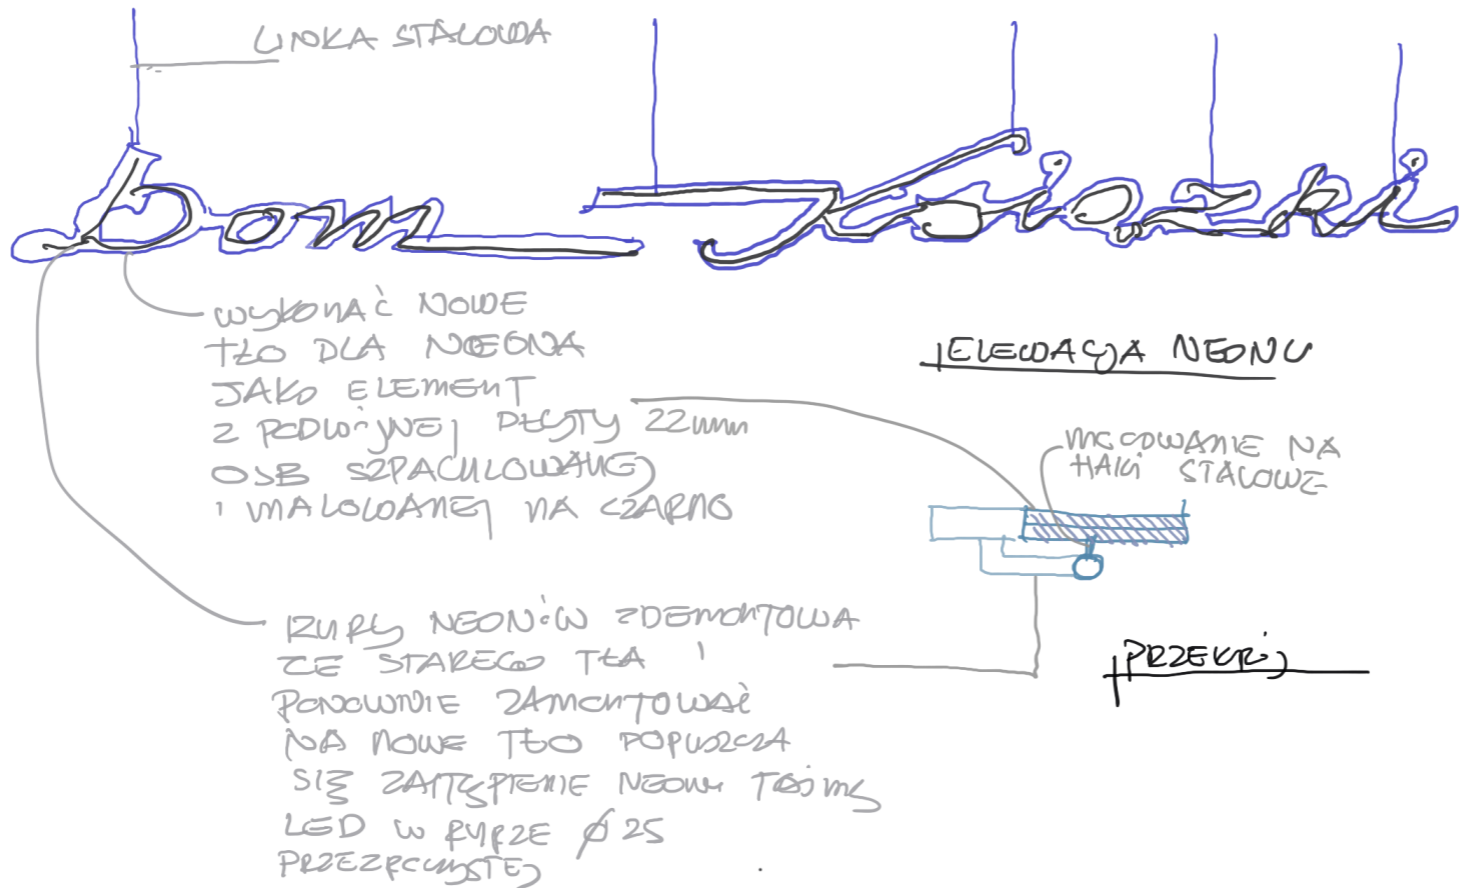 LINKA STALOWA
Dom Książki
WYKONAĆ NOWE
TŁO DLA NEONA
JAKO ELEMENT
Z PODWÓJNEJ PŁYTY 22mm
OSB SZPACHLOWANEJ
I MALOWANEJ NA CZARNO
ELEWACJA NEONU
MOCOWANIE NA
HAKI STALOWE
RURY NEONÓW ZDEMONTOWA
ZE STAREGO TŁA I
PONOWNIE ZAMONTOWAĆ
NA NOWE TŁO DOPUSZCZA
SIĘ ZASTĄPIENIE NEONU TAŚMĄ
LED W RURZE Ø 25
PRZEZROCZYSTEJ
PRZEKRÓJ